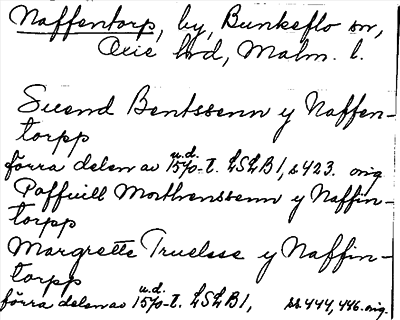 Naffentorp, by, Bunkeflo sn,
Oxie hrd, Malm. l.
Suend Bentssenn y Naffen-
torpp
förra delen av u.d. 1570-t. LSLB 1, s 423. orig
Poffuill Morthenssenn y Naffin-
torpp
Margrette Truelsse y Naffin-
torpp
förra delen av u.d. 1570-t. LSLB 1, ss 444, 446. orig.